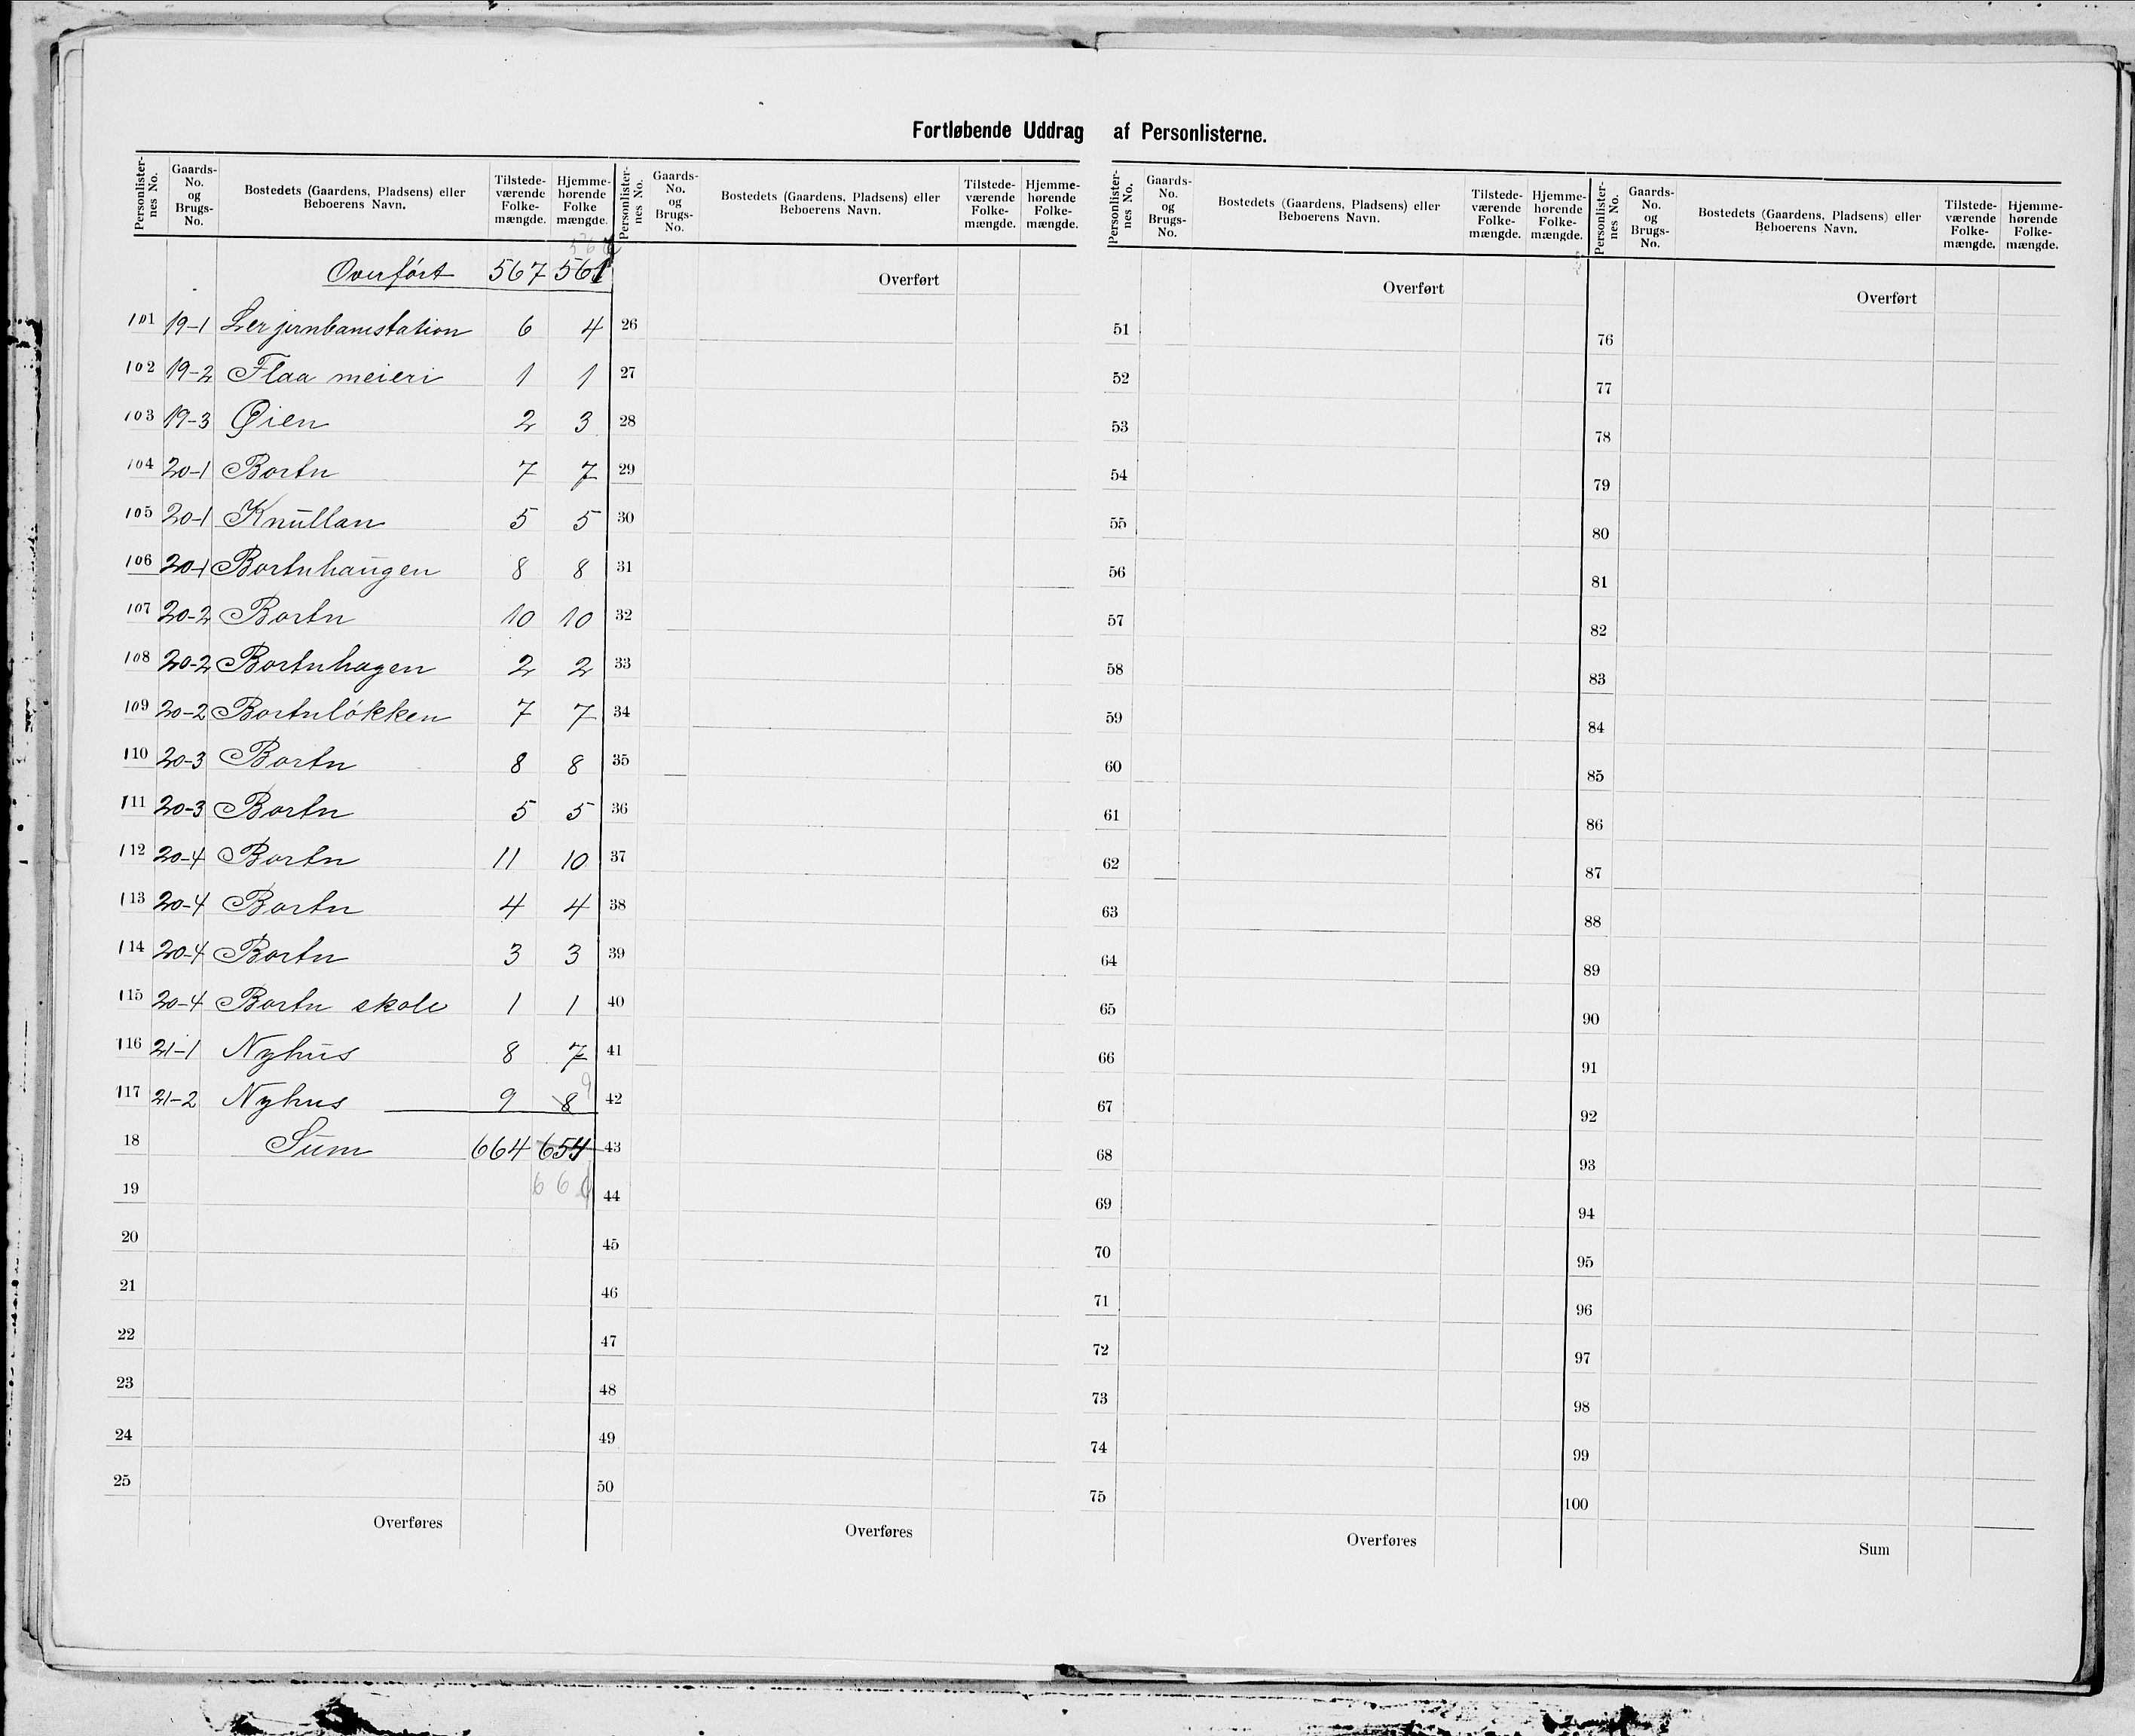 Fortløbende Uddrag af Personlisterne.
Personlister-nes No. Gaards-No. og Brugs-No. Bostedets (Gaardens, Pladsens) eller Beboerens Navn. Tilstede-værende Folke-mængde. Hjemme-hørende Folke mængde.
Overført 567 561
101 19-1 Ler jernbanestation 6 4
102 19-2 Flaa meieri 1 1
103 19-3 Øien 2 3
104 20-1 Bortn 7 7
105 20-1 Knullan 5 5
106 20-1 Bortnhaugen 8 8
107 20-2 Bortn 10 10
108 20-2 Bortnhagen 2 2
109 20-2 Bortnlökken 7 7
110 20-3 Bortn 8 8
111 20-3 Bortn 5 5
112 20-4 Bortn 11 10
113 20-4 Bortn 4 4
114 20-4 Bortn 3 3
115 20-4 Bortn skole 1 1
116 21-1 Nyhus 8 7
9
117 21-2 Nyhus 9 8
18 Sum 664 654
19
20
21
22
23
24
25
Overføres
Personlister-nes No. Gaards-No. og Brugs-No. Bostedets (Gaardens, Pladsens) eller Beboerens Navn. Tilstede-værende Folke-mængde. Hjemme-hørende Folke-mængde.
Overført
26
27
28
29
30
31
32
33
34
35
36
37
38
39
40
41
42
43
44
45
46
47
48
49
50
Overføres
Personlister-nes No. Gaards-No. og Brugs-No. Bostedets (Gaardens, Pladsens) eller Beboerens Navn. Tilstede-værende Folke-mængde. Hjemme-hørende Folke-mængde.
Overført
51
52
53
54
55
56
57
58
59
60
61
62
63
64
65
66
67
68
69
70
71
72
73
74
75
Overføres
Personlister-nes No. Gaards-No. og Brugs-No. Bostedets (Gaardens, Pladsens) eller Beboerens Navn. Tilstede-værende Folke-mængde. Hjemme-hørende Folke-mængde.
Overført
76
77
78
79
80
81
82
83
84
85
86
87
88
89
90
91
92
93
94
95
96
97
98
99
100
Sum